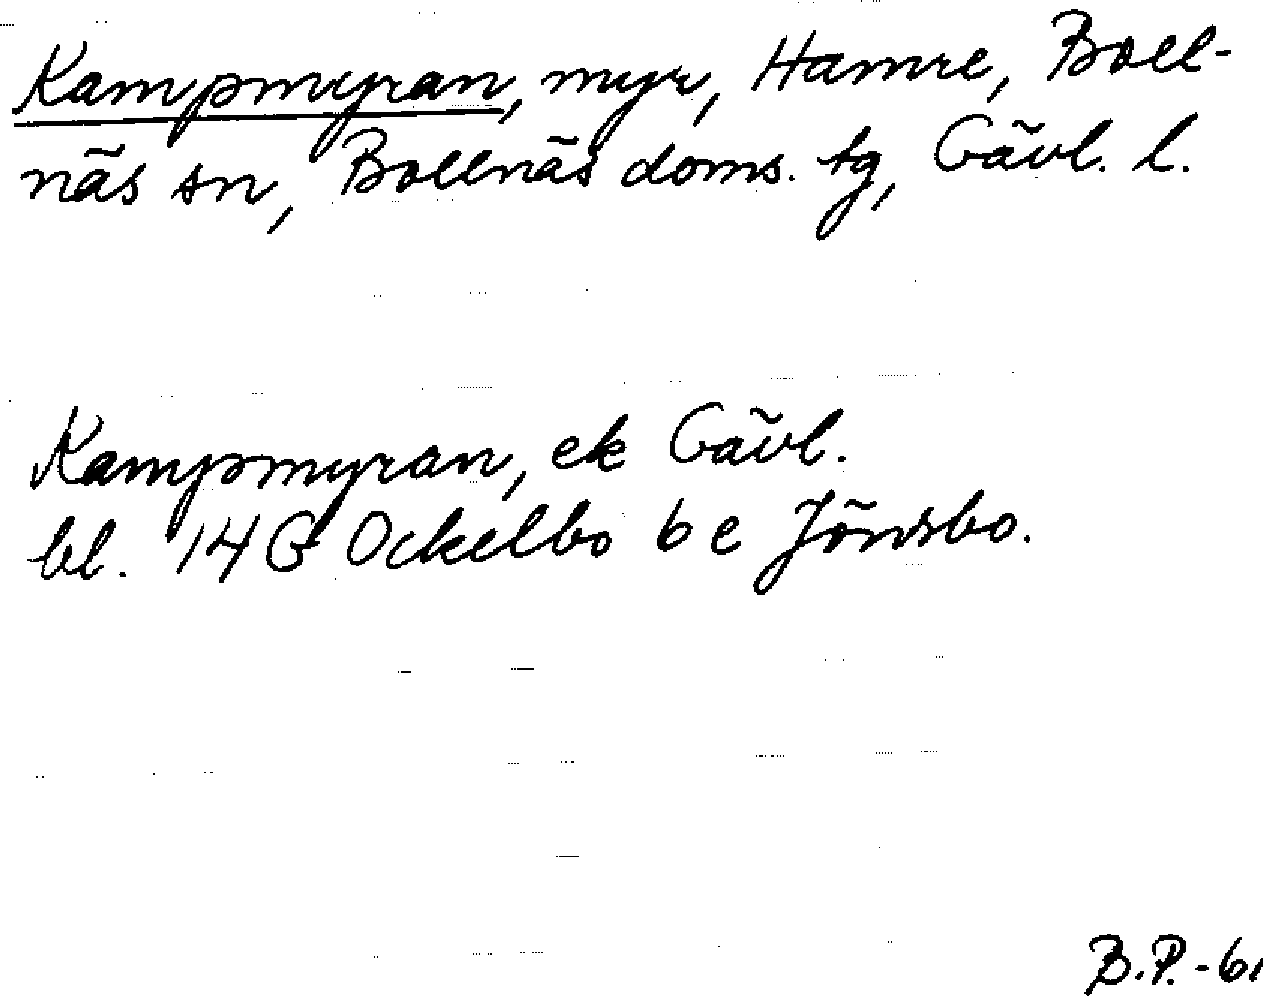 Kampmyran, myr, Hamre, Boll-
näs sn, Bollnäs doms. tg, Gävl. l.
Kampmyran, ek Gävl.
bl. 14 G Ockelbo 6 e Jönsbo.
B.P.-61